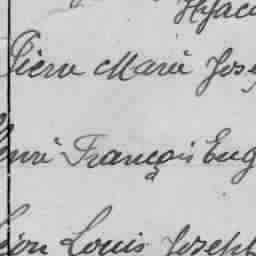 Hyac
Pierre Marie Jose
Henri François Eug
Léon Louis Joseph